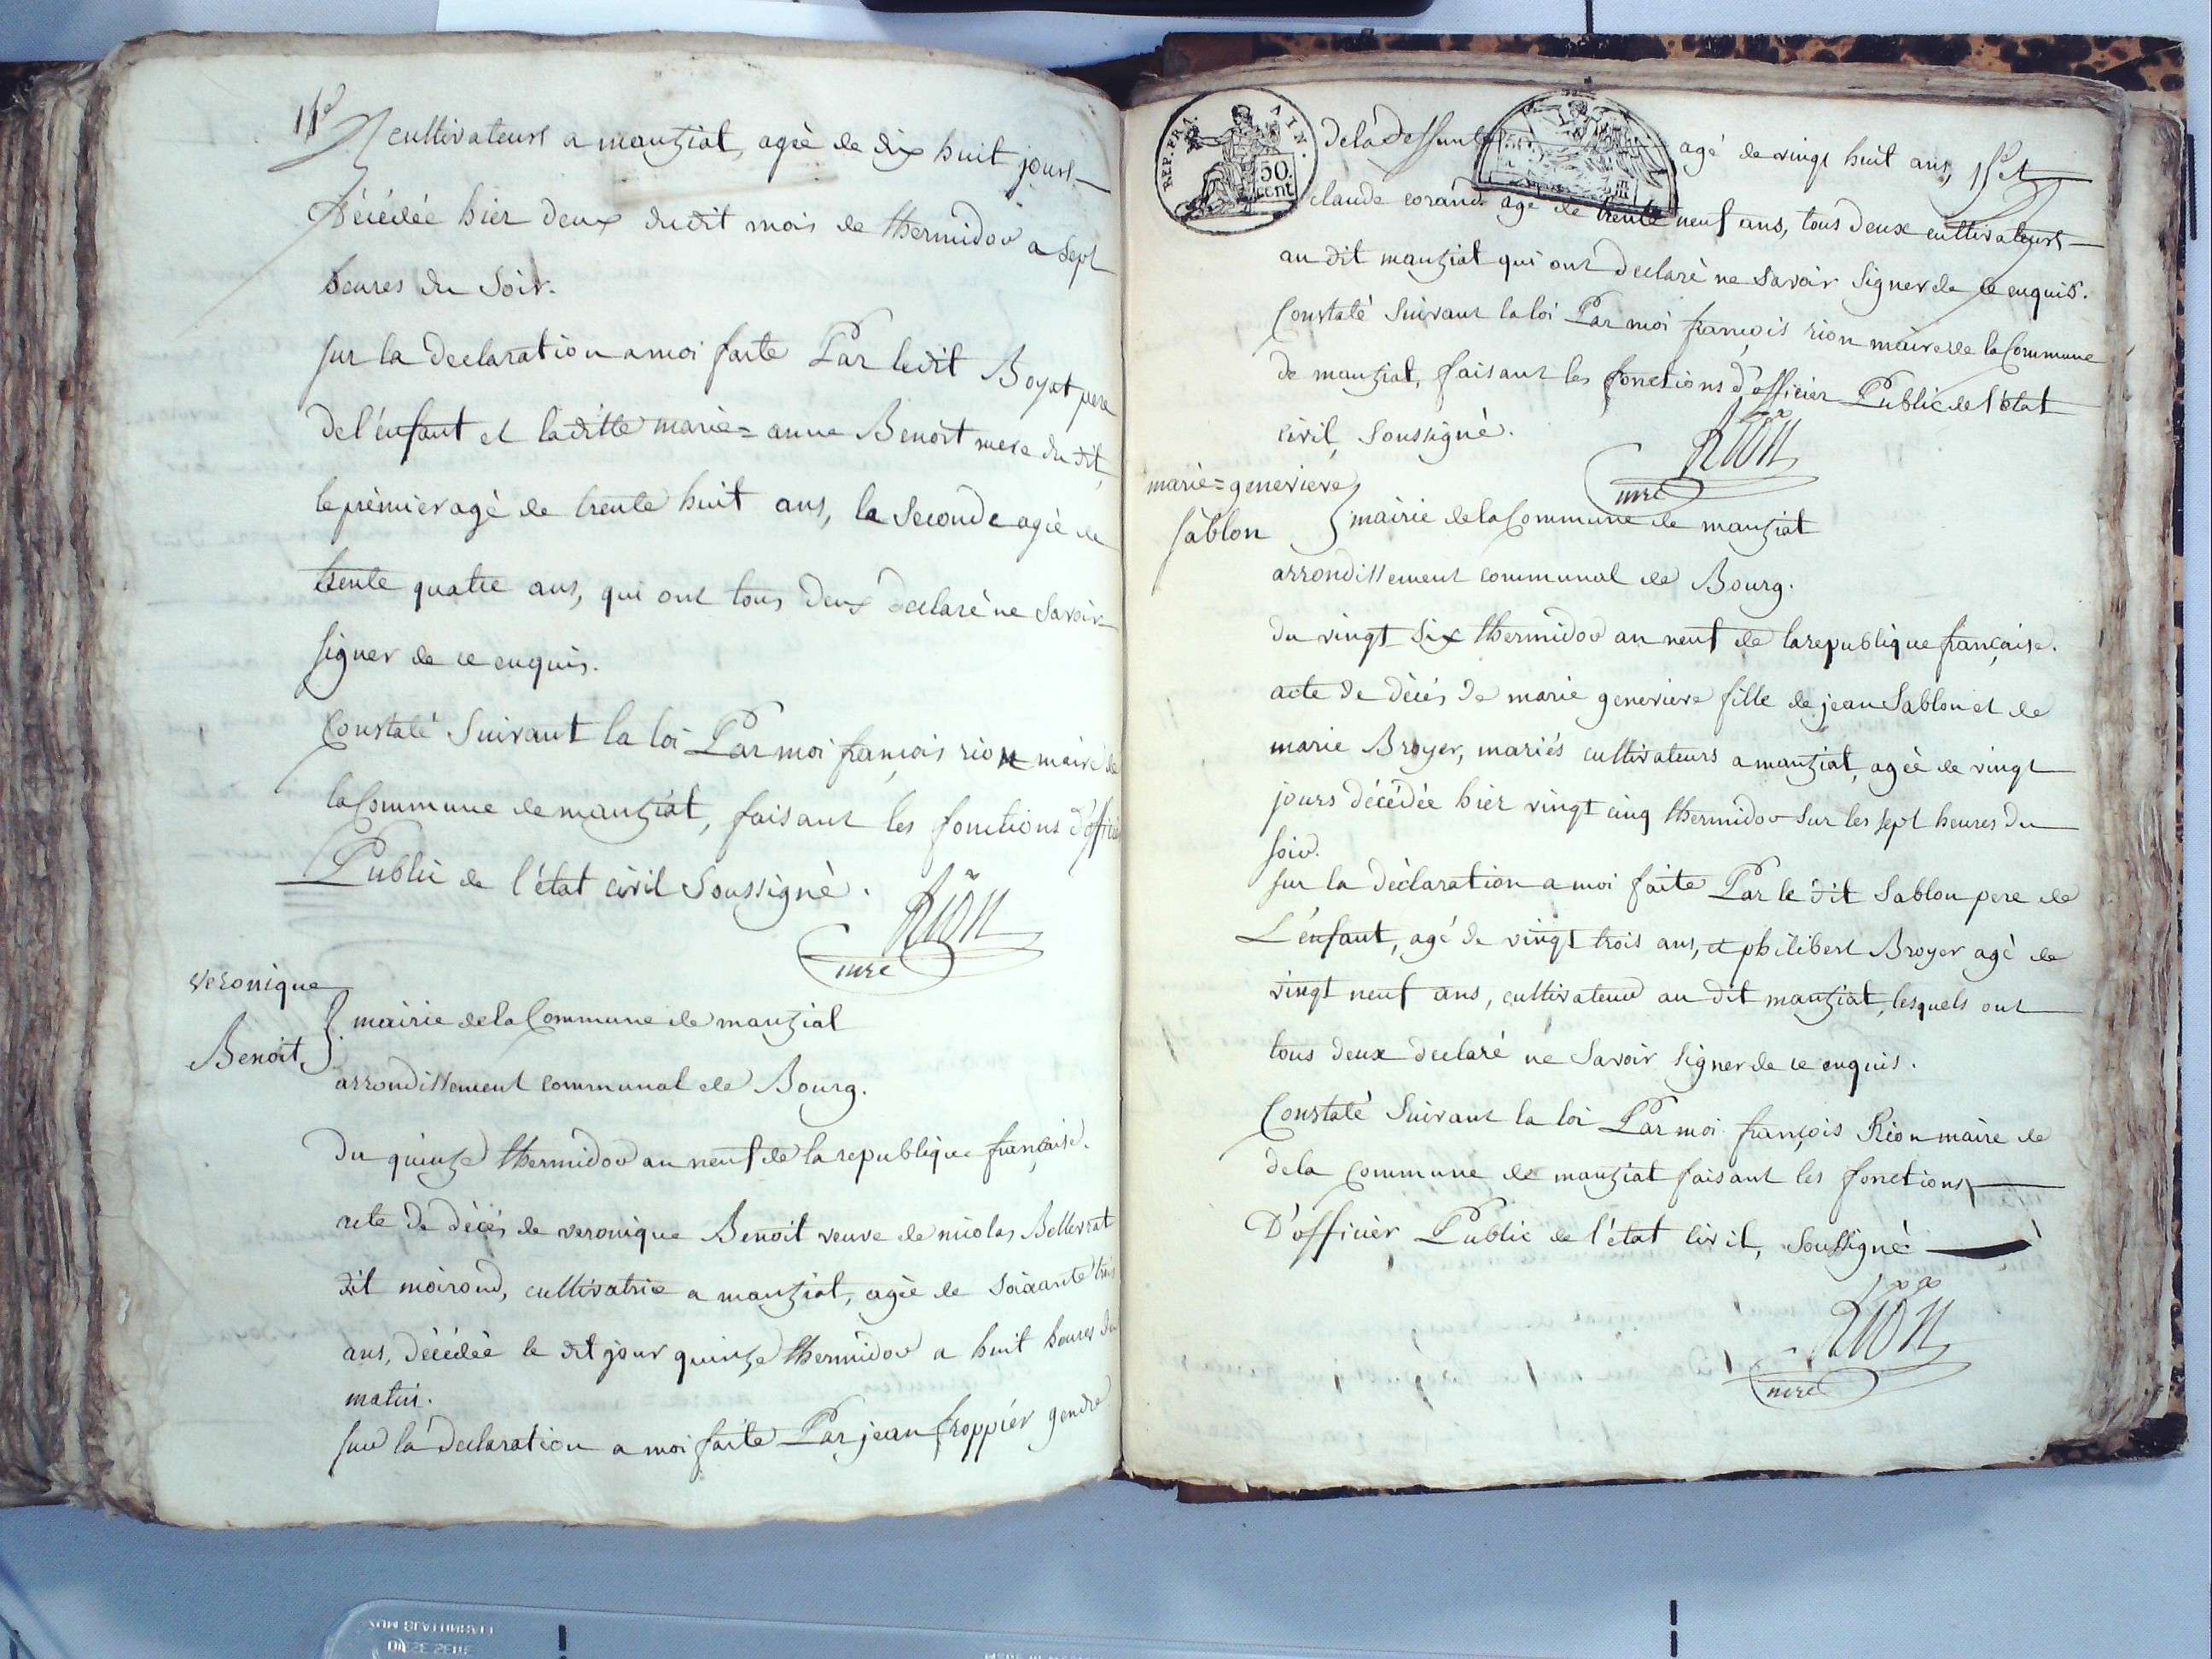 cultivateurs a manziat, agée de dix huit jours
Décédée hier deux dudit mois de thermidor a sept
heures du soir.
sur la declaration a moi faite Par ledit Boyat pere
de l'enfant et laditte marie=anne Benoit mere du dit,
le prémier agé de trente huit ans, la seconde agée de
trente quatre ans, qui ont tous deux déclaré ne savoir
signer de ce enquis.
Constaté suivant la loi Par moi françois rion maire de
la Commune de manziat, faisant les fonctions d'officier
Public de l'état civil soussigné.
Rion
mre
veronique
Benoit
mairie de la Commune de manziat
arrondissement communal de Bourg.
du quinze thermidor an neuf de la republique française.
acte de décés de veronique Benoit veuve de nicolas Bellevrat
dit moirond, cultivatrice a manziat, agée de soixante trois
ans, décédée le dit jour quinze thermidor a huit heures du
matin.
sur la declaration a moi faite Par jean froppier gendre
REP. FRA. AIN.
50. cent
de la deffunte agé de vingt huit ans, et
claude corand agé de trente neuf ans, tous deux cultivateurs
au dit manziat qui ont declaré ne savoir signer de ce enquis.
Constaté suivant la loi Par moi françois rion maire de la Commune
de manziat, faisant les fonctions d'officier Public de l'état
civil soussigné.
Rion
mre
marie=genevieve
sablon
mairie de la Commune de manziat
arrondissement communal de Bourg.
du vingt six thermidor an neuf de la republique française.
acte de décés de marie genevieve fille de jean Sablon et de
marie Broyer, mariés cultivateurs a manziat, agée de vingt
jours décédée hier vingt cinq thermidor sur les sept heures du
soir.
sur la déclaration a moi faite Par le dit Sablon pere de
L'enfant, agé de vingt trois ans, et philibert Broyer agé de
vingt neuf ans, cultivateur au dit manziat, lesquels ont
tous deux declaré ne savoir signer de ce enquis.
Constaté suivant la loi Par moi françois Rion maire de
de la Commune de manziat faisant les fonctions
D'officier Public de l'état civil, soussigné
Rion
mre